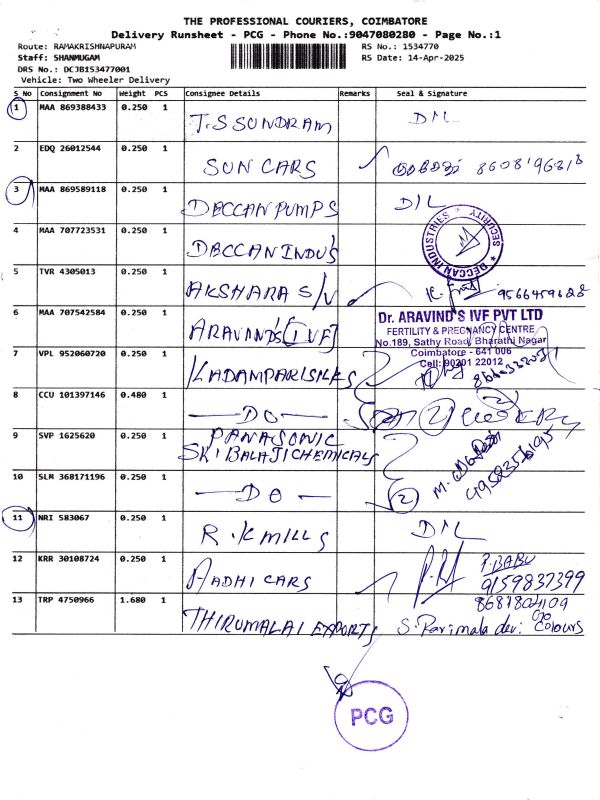 THE PROFESSIONAL COURIERS, COIMBATORE
Delivery Runsheet - PCG - Phone No.:9047080280 - Page No.:1
Route: RAMAKRISHNAPURAM RS No.: 1534770
Staff: SHANMUGAM RS Date: 14-Apr-2025
DRS No.: DCJB153477001
Vehicle: Two Wheeler Delivery
S No Consignment No Weight PCS Consignee Details Remarks Seal & Signature
1 MAA 869388433 0.250 1 T.S SUNDRAM D/L
2 EDQ 26012544 0.250 1 SUN CARS
3 MAA 869589118 0.250 1 DECCAN PUMPS D/L
4 MAA 707723531 0.250 1 DECCAN INDU'S
DECCAN INDUSTRIES * SECURITY *
5 TVR 4305013 0.250 1 AKSHARA S/V 9566459628
6 MAA 707542584 0.250 1 ARAVIND'S [IVF]
Dr. ARAVIND'S IVF PVT LTD
FERTILITY & PREGNANCY CENTRE
No.189, Sathy Road, Bharathi Nagar
Coimbatore - 641 006
Cell: 90201 22012
7 VPL 952060720 0.250 1 KADAMPARI SILKS
8 CCU 101397146 0.480 1 —DO— 2
9 SVP 1625620 0.250 1 PANASONIC
SRI BALAJI CHEMICALS
10 SLM 368171196 0.250 1 —DO— 2
11 NRI 583067 0.250 1 R.K MILLS D/L
12 KRR 30108724 0.250 1 AADHI CARS P.BABU
9159837399
13 TRP 4750966 1.680 1 THIRUMALAI EXPORTS S. Parimala devi Colours
PCG